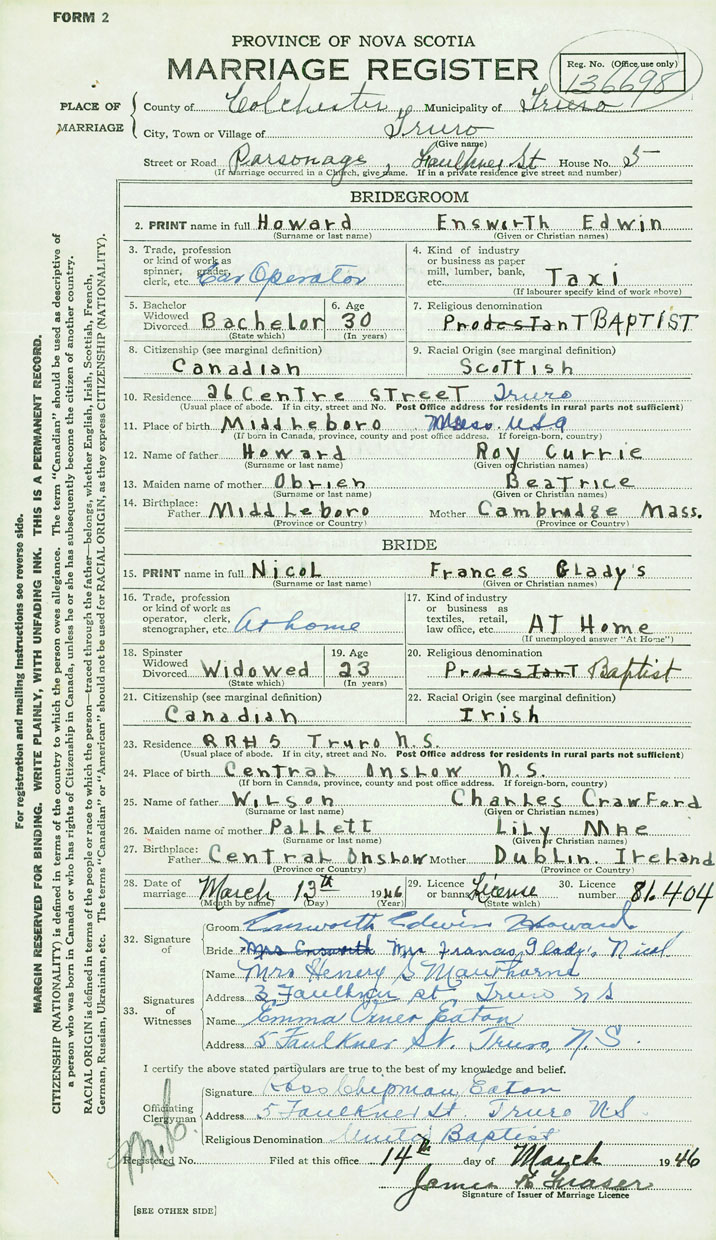 FORM 2
PROVINCE OF NOVA SCOTIA
MARRIAGE REGISTER
Reg. No. (Office use only)
136698
PLACE OF MARRIAGE
County of Colchester Municipality of Truro
City, Town or Village of Truro
(Give name)
Street or Road Parsonage, Faulkner St House No. 5
(If marriage occurred in a Church, give name. If in a private residence give street and number)
BRIDEGROOM
2. PRINT name in full Howard Ensworth Edwin
(Surname or last name) (Given or Christian names)
3. Trade, profession or kind of work as spinner, grader, clerk, etc. Car Operator
4. Kind of industry or business as paper mill, lumber, bank, etc. Taxi
(If labourer specify kind of work above)
5. Bachelor Widowed Divorced Bachelor
(State which)
6. Age 30
(In years)
7. Religious denomination Prodestant BAPTIST
8. Citizenship (see marginal definition) Canadian
9. Racial Origin (see marginal definition) Scottish
10. Residence 26 Centre Street Truro
(Usual place of abode. If in city, street and No. Post Office address for residents in rural parts not sufficient)
11. Place of birth Middleboro Mass. USA
(If born in Canada, province, county and post office address. If foreign-born, country)
12. Name of father Howard Roy Currie
(Surname or last name) (Given or Christian names)
13. Maiden name of mother Obrien Beatrice
(Surname or last name) (Given or Christian names)
14. Birthplace: Father Middleboro Mother Cambrodge Mass.
(Province or Country) (Province or Country)
BRIDE
15. PRINT name in full Nicol Frances Glady's
(Surname or last name) (Given or Christian names)
16. Trade, profession or kind of work as operator, clerk, stenographer, etc. At home
17. Kind of industry or business as textiles, retail, law office, etc. AT Home
(If unemployed answer "At Home")
18. Spinster Widowed Divorced Widowed
(State which)
19. Age 23
(In years)
20. Religious denomination Prodestant Baptist
21. Citizenship (see marginal definition) Canadian
22. Racial Origin (see marginal definition) Irish
23. Residence RR#5 Truro N.S.
(Usual place of abode. If in city, street and No. Post Office address for residents in rural parts not sufficient)
24. Place of birth Central Onslow N.S.
(If born in Canada, province, county and post office address. If foreign-born, country)
25. Name of father Wilson Charles Crawford
(Surname or last name) (Given or Christian names)
26. Maiden name of mother Pallett Lily Mae
(Surname or last name) (Given or Christian names)
27. Birthplace: Father Central Onslow Mother Dublin. Ireland
(Province or Country) (Province or Country)
28. Date of marriage March 13th 1946
(Month by name) (Day) (Year)
29. Licence or banns License
(State which)
30. Licence number 81.404
32. Signature of
Groom Ensworth Edwin Howard
Bride Mrs Ensworth Mrs Francis Glady's Nicol
33. Signatures of Witnesses
Name Mrs Henery S Mawthorne
Address 3 Faulkner st Truro N S
Name Emma Eaton
Address 5 Faulkner St. Truro, N.S.
I certify the above stated particulars are true to the best of my knowledge and belief.
Officiating Clergyman
Signature Ross Chipman Eaton
Address 5 Faulkner St. Truro N S
Religious Denomination United Baptist
Registered No. Filed at this office 14th day of March 1946
James Fraser
Signature of Issuer of Marriage Licence
[SEE OTHER SIDE]
For registration and mailing instructions see reverse side.
MARGIN RESERVED FOR BINDING. WRITE PLAINLY, WITH UNFADING INK. THIS IS A PERMANENT RECORD.
CITIZENSHIP (NATIONALITY) is defined in terms of the country to which the person owes allegiance. The term "Canadian" should be used as descriptive of
a person who was born in Canada or who has rights of Citizenship in Canada, unless he or she has subsequently become the citizen of another country.
RACIAL ORIGIN is defined in terms of the people or race to which the person—traced through the father—belongs, whether English, Irish, Scottish, French,
German, Russian, Ukrainian, etc. The terms "Canadian" or "American" should not be used for RACIAL ORIGIN, as they express CITIZENSHIP (NATIONALITY).